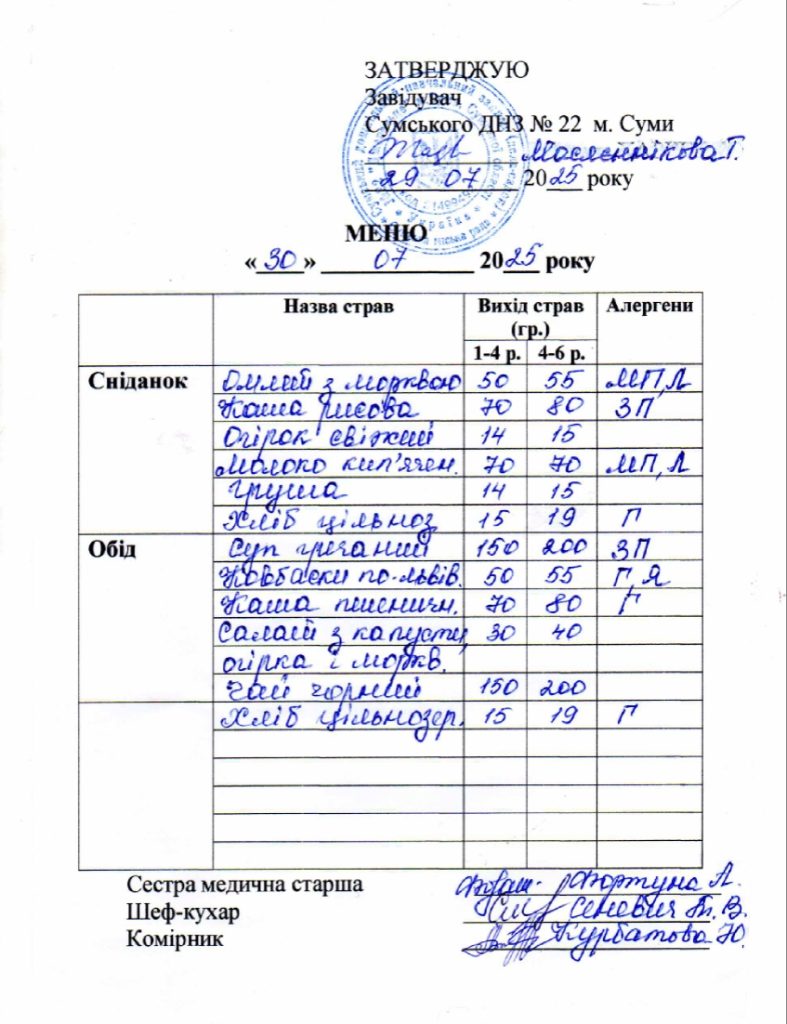 ЗАТВЕРДЖУЮ
Завідувач
Сумського ДНЗ № 22 м. Суми
Масленнікова Т.
29 07 2025 року
МЕНЮ
«30» 07 2025 року
Назва страв Вихід страв (гр.) Алергени
1-4 р. 4-6 р.
Сніданок Омлет з морквою 50 55 МП,Л
Каша рисова 70 80 ЗП
Огірок свіжий 14 15
Молоко кип'ячен. 70 70 МП,Л
Груша 14 15
Хліб цільноз 15 19 Г
Обід Суп гречаний 150 200 ЗП
Ковбаски по-львів. 50 55 Г,Я
Каша пшеничн. 70 80 Г
Салат з капусти, 30 40
огірка і моркв.
Чай чорний 150 200
Хліб цільнозер. 15 19 Г
Сестра медична старша Фортуна Л.
Шеф-кухар Сеневич Т. В.
Комірник Курбатова Ю.